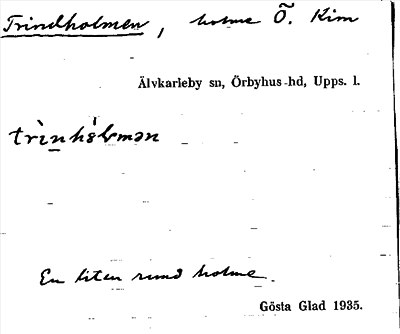 Trindholmen, holme Ö. Kim
Älvkarleby sn, Örbyhus hd, Upps. l.
trìnhólmən
En liten rund holme.
Gösta Glad 1935.